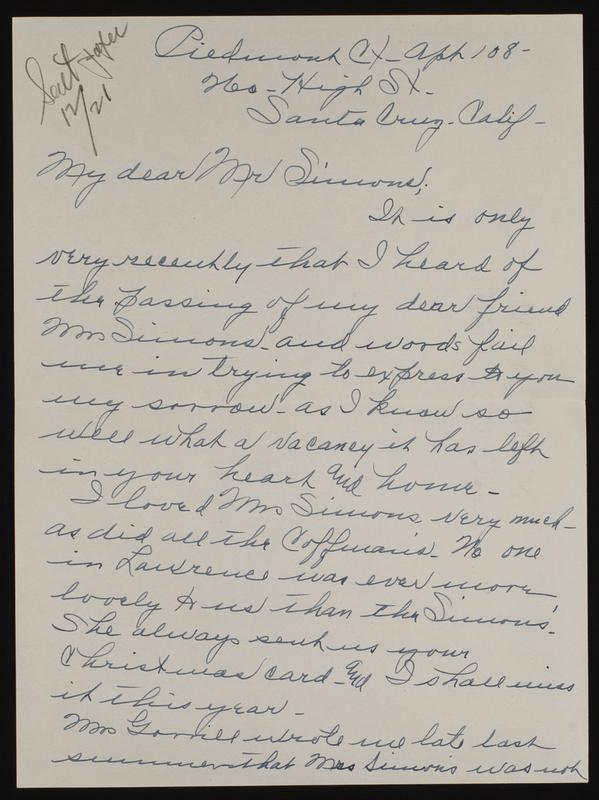 Sent
12/21
Piedmont Ct - Apt 108 -
High St -
Santa Cruz - Calif -
My dear Mr Simons;
It is only
very recently that I heard of
the passing of my dear friend
Mrs Simons - and words fail
me in trying to express to you
my sorrow - as I know so
well what a vacancy it has left
in your heart and home -
I loved Mrs Simons very much -
as did all the Coffman's - No one
in Lawrence was ever more
lovely to us than the Simons'.
She always sent us your
Christmas card - and I shall miss
it this year -
Mrs wrote me late last
summer that Mrs Simons was not